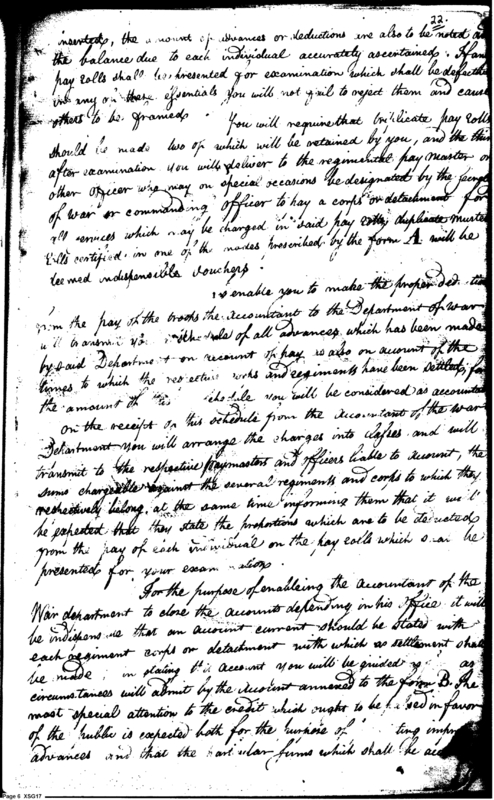 22.
inserted, the amount of advances or deductions are also to be noted
the balance due to each individual accurately ascertained. If any
pay rolls shall be presented for examination which shall be defective
in any of these essentials you will not fail to reject them and cause
others to be framed. You will require that triplicate pay rolls
should be made two of which will be retained by you, and the third
after examination you will deliver to the regimental pay master or
other officer who may on special occasions be designated by the
of war or commanding officer to pay a corps or detachment for
all services which may be charged in said pay rolls, duplicate muster
rolls certified in one of the modes prescribed by the form A will be
deemed indispensible vouchers.
To enable you to make the proper deduction
from the pay of the troops the accountant to the Department of war
will transmit you schedule of all advances which has been made
by said Department on account of pay, as also on account of the
times to which the respective corps and regiments have been settled, for
the amount of this schedule you will be considered as accountable
On the receipt of this schedule from the accountant of the war
Department you will arrange the charges into classes and will
transmit to the respective paymasters and officers liable to account, the
sums chargeable against the several regiments and corps to which they
respectively belong, at the same time informing them that it will
be expected that they state the proportions which are to be deducted
from the pay of each individual on the pay rolls which shall be
presented for your examination.
For the purpose of enableing the accountant of the
War department to close the accounts depending in his office it will
be indispensible that an account current should be stated with
each regiment corps or detachment with which a settlement shall
be made in stating this account you will be guided as
circumstances will admit by the account annexed to the form B. The
most special attention to the credit which ought to be passed in favor
of the public is expected both for the purpose of
advances and that the particular sums which shall be
Page 6 XSG17